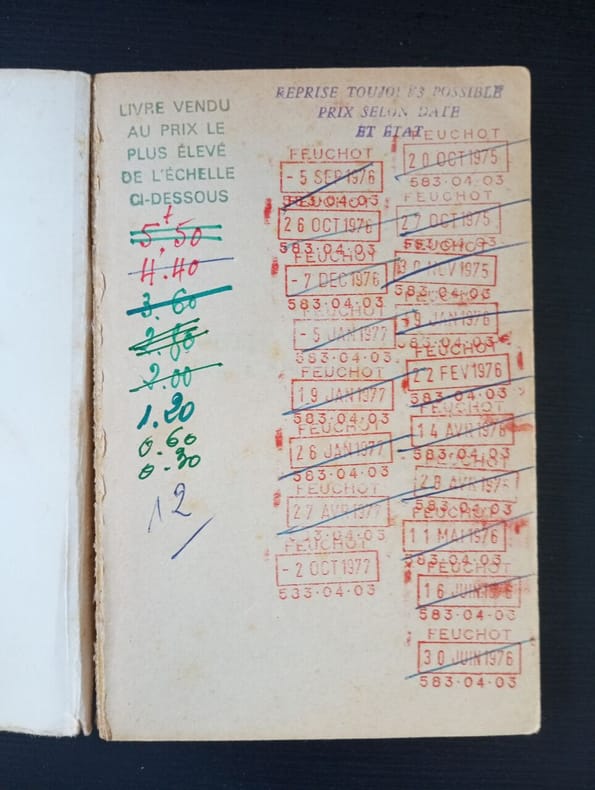 LIVRE VENDU
AU PRIX LE
PLUS ÉLEVÉ
DE L'ÉCHELLE
CI-DESSOUS
5,50
4.40
3.60
2.80
2.00
1.20
0.60
0.30
12
REPRISE TOUJOURS POSSIBLE
PRIX SELON DATE
ET ETAT
FEUCHOT
- 5 SEP 1976
583·04·03
FEUCHOT
26 OCT 1976
583·04·03
FEUCHOT
- 7 DEC 1976
583·04·03
FEUCHOT
- 5 JAN 1977
583·04·03
FEUCHOT
19 JAN 1977
583·04·03
FEUCHOT
26 JAN 1977
583·04·03
FEUCHOT
27 AVR 1977
583·04·03
FEUCHOT
- 2 OCT 1977
583·04·03
FEUCHOT
20 OCT 1975
583·04·03
FEUCHOT
27 OCT 1975
583·04·03
FEUCHOT
30 NOV 1975
583·04·03
FEUCHOT
9 JAN 1976
583·04·03
FEUCHOT
22 FEV 1976
583·04·03
FEUCHOT
14 AVR 1976
583·04·03
FEUCHOT
28 AVR 1976
583·04·03
FEUCHOT
11 MAI 1976
583·04·03
FEUCHOT
16 JUIN 1976
583·04·03
FEUCHOT
30 JUIN 1976
583·04·03